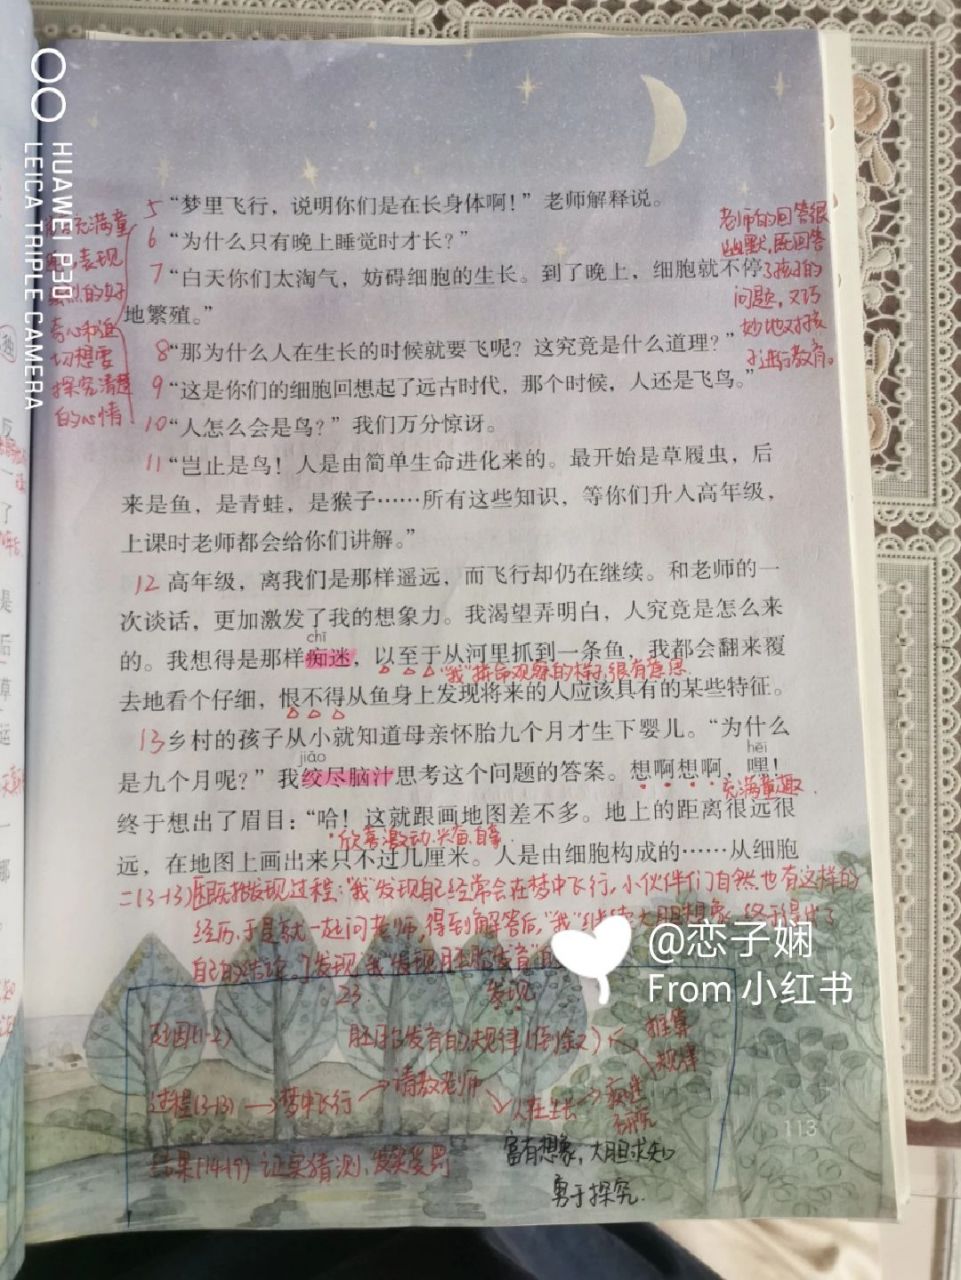 HUAWEI P30
LEICA TRIPLE CAMERA
5 “梦里飞行，说明你们是在长身体啊！”老师解释说。
6 “为什么只有晚上睡觉时才长？”
7 “白天你们太淘气，妨碍细胞的生长。到了晚上，细胞就不停
地繁殖。”
8 “那为什么人在生长的时候就要飞呢？这究竟是什么道理？”
9 “这是你们的细胞回想起了远古时代，那个时候，人还是飞鸟。”
10 “人怎么会是鸟？”我们万分惊讶。
11 “岂止是鸟！人是由简单生命进化来的。最开始是草履虫，后
来是鱼，是青蛙，是猴子……所有这些知识，等你们升入高年级，
上课时老师都会给你们讲解。”
12 高年级，离我们是那样遥远，而飞行却仍在继续。和老师的一
次谈话，更加激发了我的想象力。我渴望弄明白，人究竟是怎么来
chī
的。我想得是那样痴迷，以至于从河里抓到一条鱼，我都会翻来覆
“我”拼命观察的样子，很有意思
去地看个仔细，恨不得从鱼身上发现将来的人应该具有的某些特征。
13 乡村的孩子从小就知道母亲怀胎九个月才生下婴儿。“为什么
jiǎo
hēi
是九个月呢？”我绞尽脑汁思考这个问题的答案。想啊想啊，嘿！
充满童趣
终于想出了眉目：“哈！这就跟画地图差不多。地上的距离很远很
欣喜激动
远，在地图上画出来只不过几厘米。人是由细胞构成的……从细胞
充满童
表现
的好
奇心和迫
切想要
探究清楚
的心情
老师的回答很
幽默，既回答
了孩子的
问题，又巧
妙地对孩
子进行教育。
二(3-13)发现过程：“我”发现自己经常会在梦中飞行，小伙伴们自然也有这样的
经历，于是就一起问老师，得到解答后，“我”继续大胆想象，终于得出了
自己的结论。
@恋子娴
From 小红书
23
发现
起因(1-2)
胚胎发育的规律
推算
规律
过程(3-13)→梦中飞行→请教老师
人在生长→
研究
结果(14-19) 证实猜测，
富有想象，大胆求知
勇于探究
113